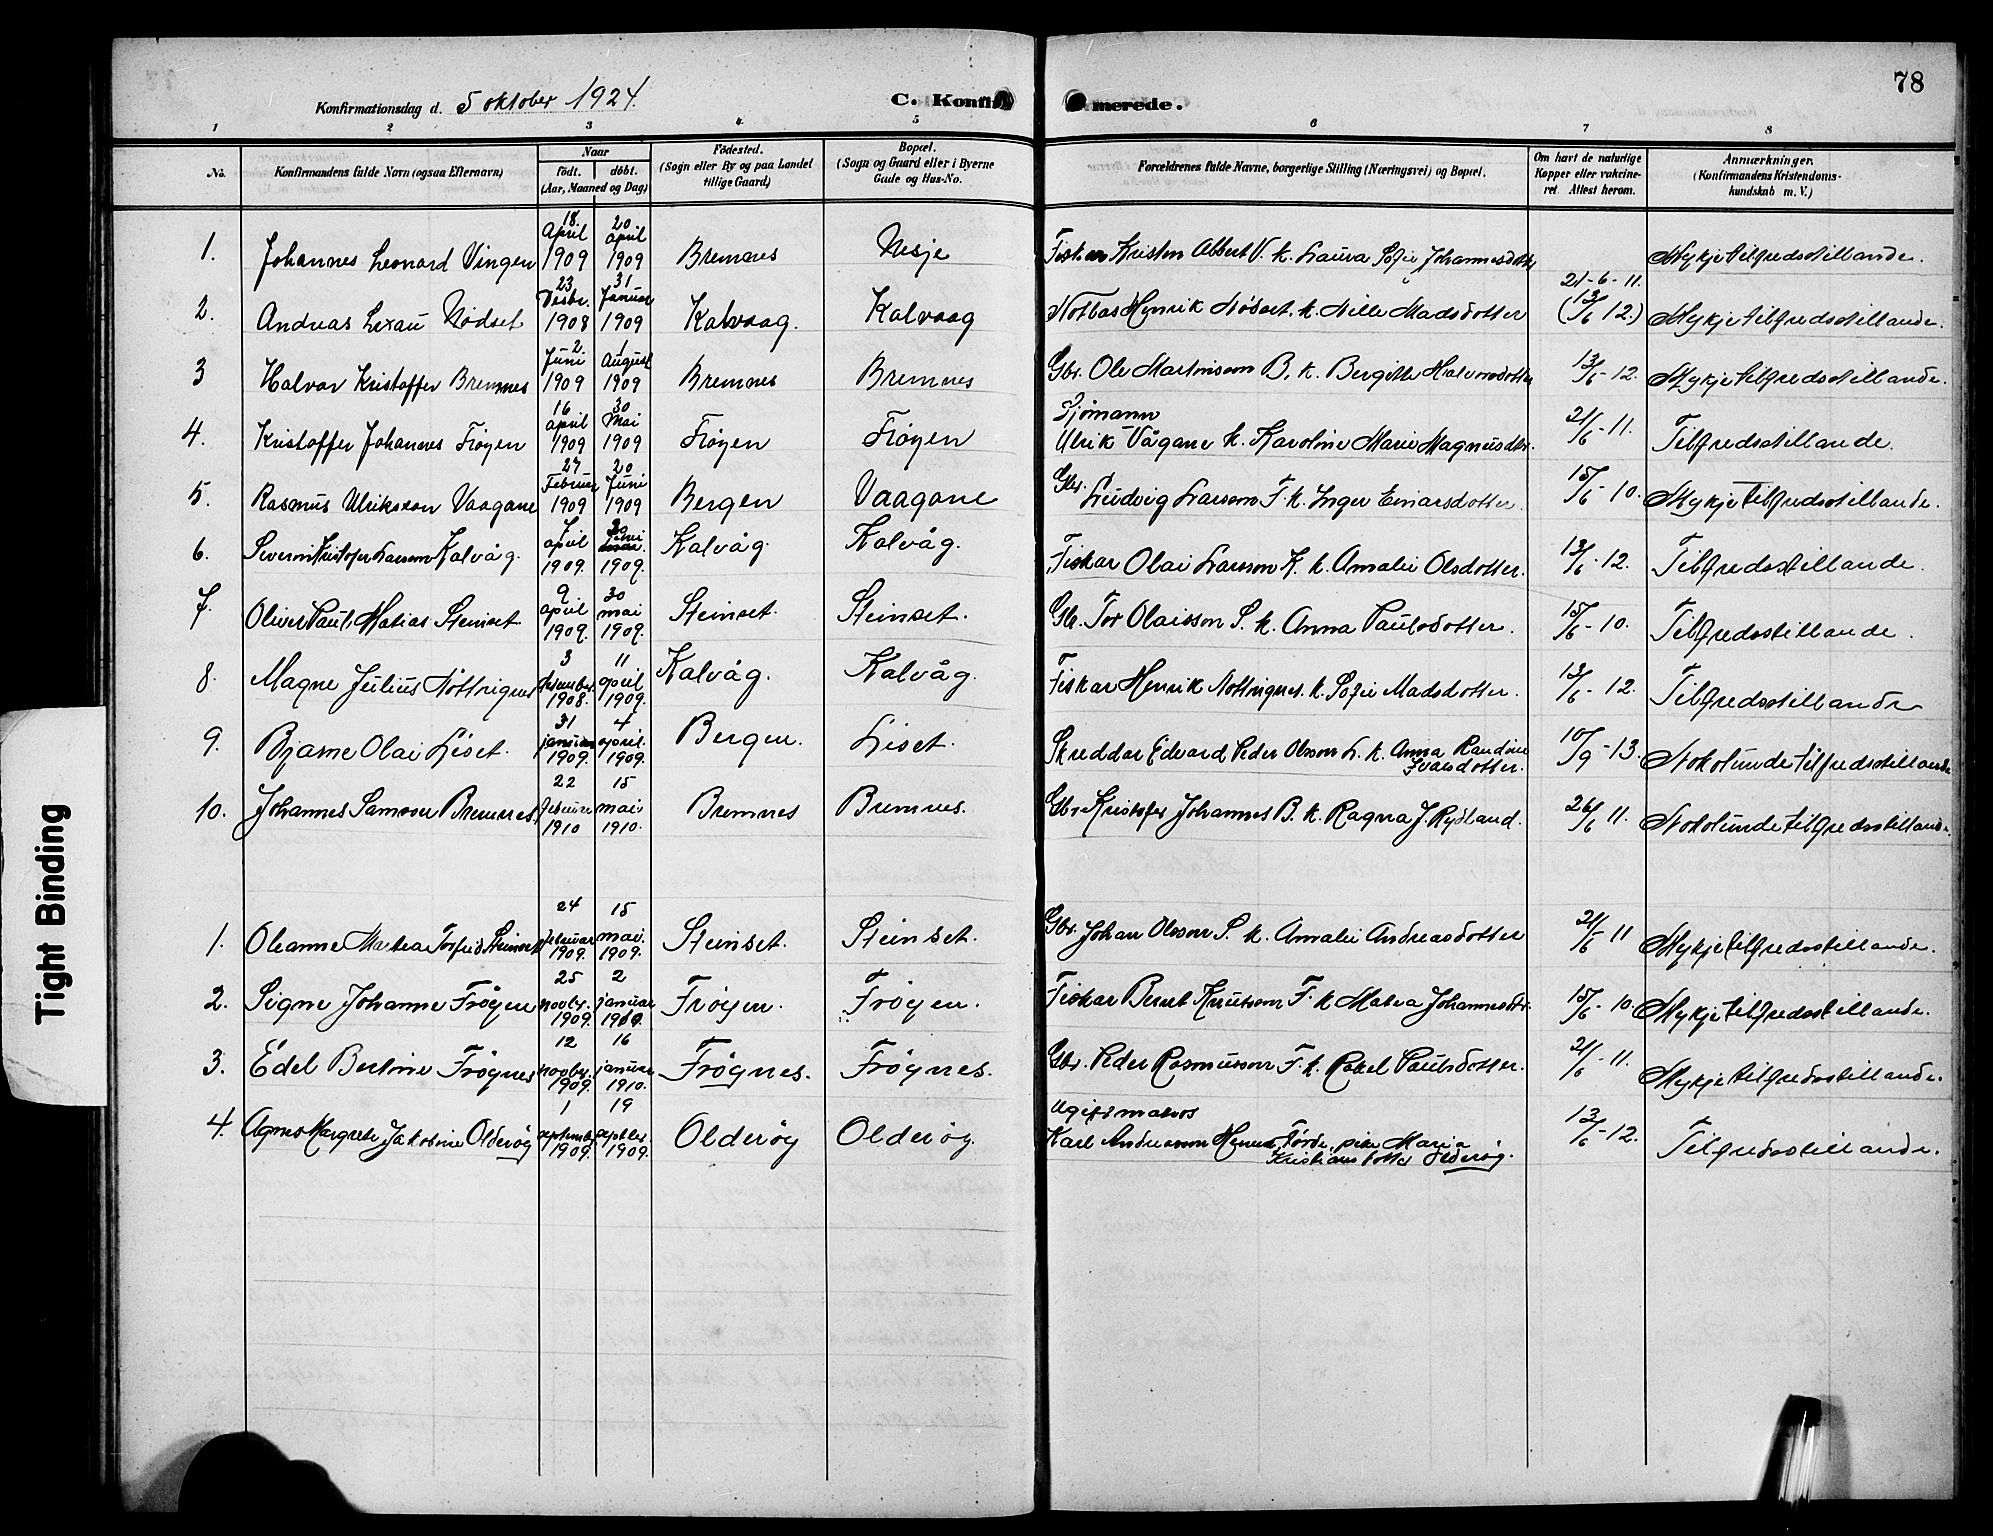 78
Konfirmationsdag d. 5 oktober 1924.
C. Konfir merede.
1 2 3 4 5 6 7 8
No.
Konfirmandens fulde Navn (ogsaa Efternavn)
Naar
født. døbt.
(Aar, Maaned og Dag)
Fødested.
(Sogn eller By og paa Landet
tillige Gaard)
Bopæl.
(Sogn og Gaard eller i Byerne
Gade og Hus-No.
Forældrenes fulde Navne, borgerlige Stilling (Næringsvei) og Bopæl.
Om havt de naturlige
Kopper eller vakcine-
ret Attest herom.
Anmærkninger.
(Konfirmandens Kristendoms-
kundskab m. V.)
1. Johannes Leonard Vingen 18 April 1909 20 april 1909 Bremnes Nesje Fiskar Kristen Albert V. k. Laura Sofie Johannesdotter Mykje tilfredsstillande.
2. Andreas Lexau Nødset 23 Desbr. 1908 31 Januar 1909 Kalvaag. Kalvaag Notbas Henrik Nødset. k. Nille Madsdotter 21-6-11. (13/6 12.) Mykje tilfredsstillande.
3 Halvar Kristoffer Bremnes 2. Juni 1909 1 August 1909 Bremnes Bremnes Gbr. Ole Martinsson B. k. Bergitte Halvorsdotter 13/6-12. Mykje tilfredsstillande.
4. Kristoffer Johannes Frøyen 16 april 1909 30 Mai 1909 Frøyen Frøyen Sjømann
Ulrik Vågane k. Karoline Marie Magnusdtr. 21/6-11. Tilfredsstillande.
5. Rasmus Ulriksson Vaagane 27 Februar 1909 20 Juni 1909 Bergen Vaagane Gbr. Ludvig Larsson F. k. Inger Einarsdotter. 15/6-10. Mykje tilfredsstillande.
6. Severin Kristofer Larsson Kalvåg. 7 april 1909. 20 1909. Kalvåg. Kalvåg. Fiskar Olai Larsson K. k. Amalie Olsdotter. 13/6-12. Tilfredsstillande.
7. Oliver Paul Matias Steinset 9 april 1909. 30 mai 1909. Steinset. Steinset. Gb. Tor Olaisson S. k. Anna Paulsdotter. 15/6-10. Tilfredsstillande.
8. Magne Julius Nøttingnes 3 desember 1908. 11 april 1909. Kalvåg. Kalvåg. Fiskar Henrik Nøttingnes. k. Sofie Madsdotter. 13/6-12. Tilfredsstillande
9. Bjarne Olai Liset. 31 januar 1909. 4 april. 1909. Bergen. Liset. Skreddar Edvard Peder Olsson L. k. Anna Randine
Ivarsdotter. 10/9-13. Nokolunde tilfredsstillande
10. Johannes Samson Bremnes. 22 februar 1910 15 mai 1910. Bremnes Bremnes. Gbr. Kristofer Johannes B. k. Ragna J. Rydland. 26/6 11. Nokolunde tilfredsstillande.
1. Oleanne Martea Torfrid Steinset 24 februar 1909. 15 mai. 1909. Steinset. Steinset. Gbr. Johan Olsson S. k. Amalie Andreasdotter 21/6 11 Mykje tilfredsstillande.
2. Signe Johanne Frøyen 25 novbr. 1909. 2 januar 1910. Frøyen. Frøyen. Fiskar Bernt Knutsson F. k. Matea Johannesdtr. 15/6-10. Mykje tilfredsstillande.
3. Edel Bertine Frøynes 12 novbr. 1909. 16 januar 1910. Frøynes. Frøynes. Gbr. Peder Rasmusson F. k. Rakel Paulsdotter. 21/6-11. Mykje tilfredsstillande.
4. Agnes Margrete Jakobine Olderøy 1 september 1909. 19 septbr. 1909. Olderøy Olderøy. Ugift matros
Karl Andreasson Førde, pike Maria
Kristiansdotter Olderøy. 13/6-12. Tilfredsstillande.
Tight Binding